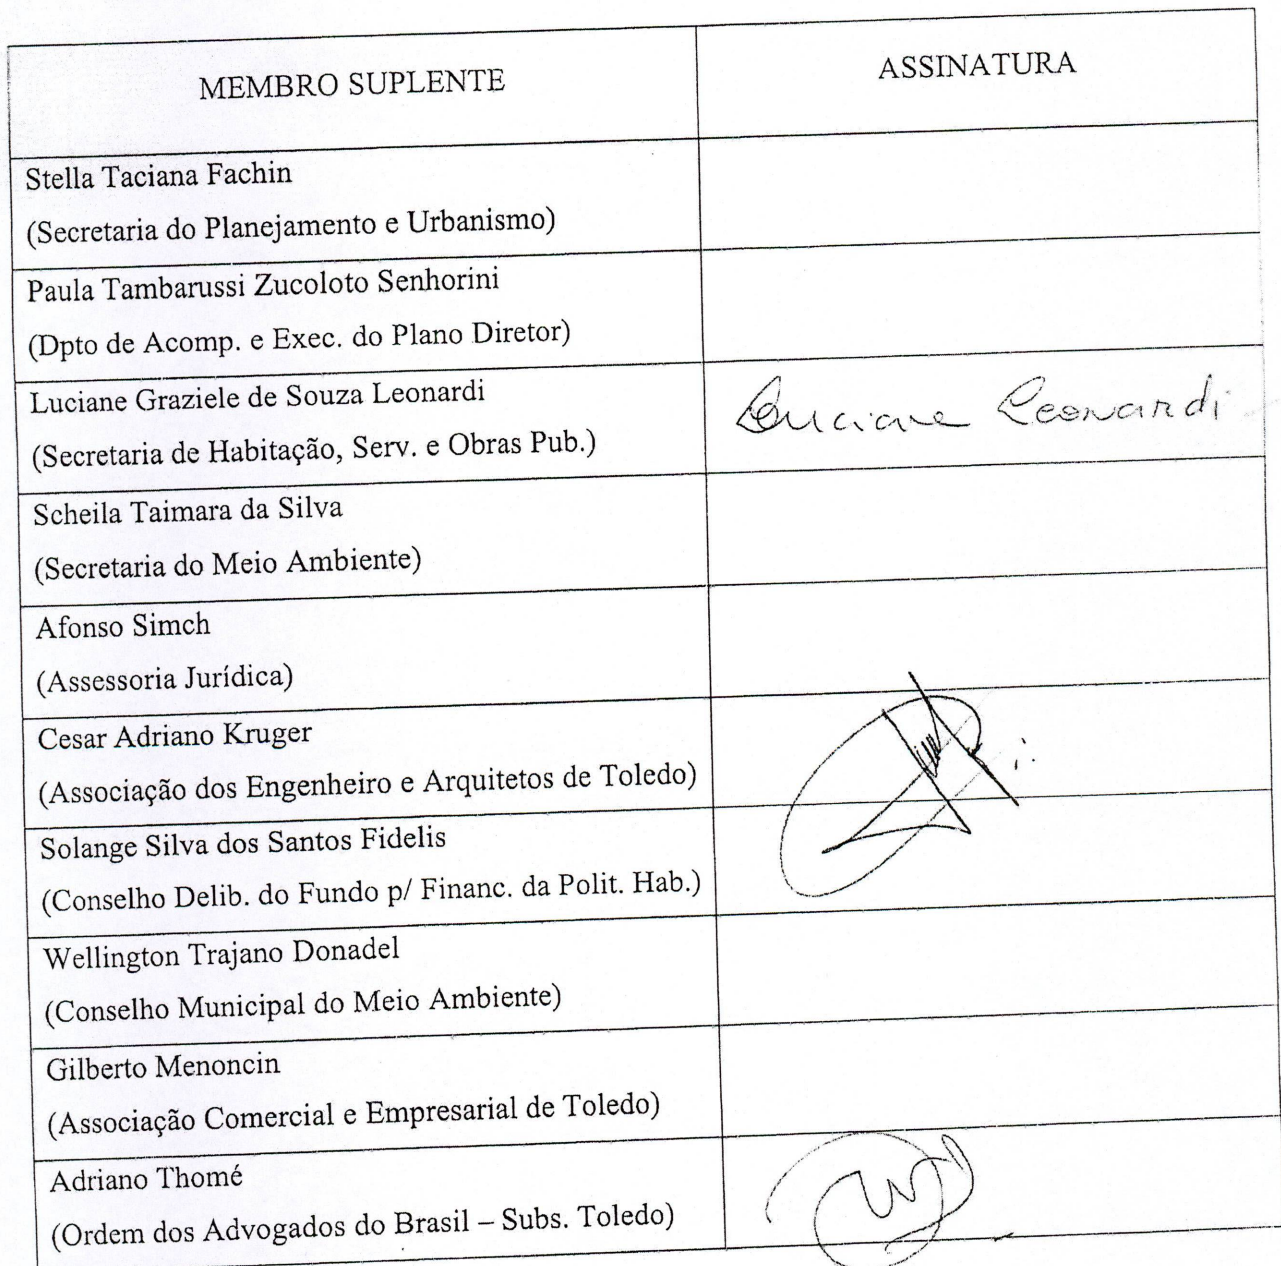 MEMBRO SUPLENTE ASSINATURA
Stella Taciana Fachin
(Secretaria do Planejamento e Urbanismo)
Paula Tambarussi Zucoloto Senhorini
(Dpto de Acomp. e Exec. do Plano Diretor)
Luciane Graziele de Souza Leonardi
(Secretaria de Habitação, Serv. e Obras Pub.)
Luciane Leonardi
Scheila Taimara da Silva
(Secretaria do Meio Ambiente)
Afonso Simch
(Assessoria Jurídica)
Cesar Adriano Kruger
(Associação dos Engenheiro e Arquitetos de Toledo)
Solange Silva dos Santos Fidelis
(Conselho Delib. do Fundo p/ Financ. da Polit. Hab.)
Wellington Trajano Donadel
(Conselho Municipal do Meio Ambiente)
Gilberto Menoncin
(Associação Comercial e Empresarial de Toledo)
Adriano Thomé
(Ordem dos Advogados do Brasil – Subs. Toledo)